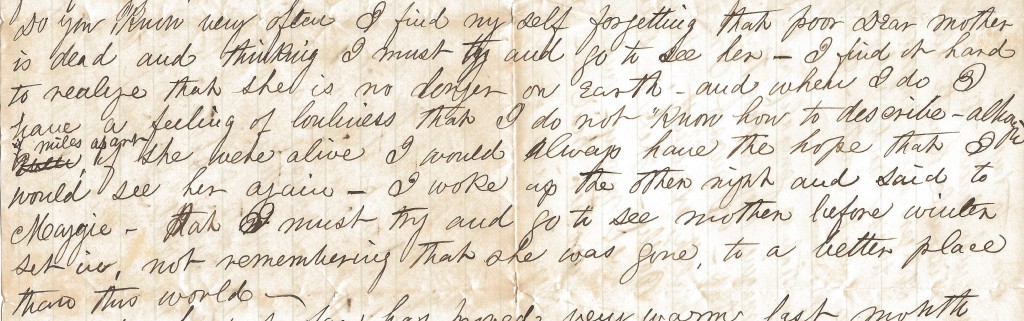 Do you Know very often I find my self forgetting that poor Dear mother
is dead and thinking I must try and go to see her – I find it hard
to realize that she is no longer on Earth – and when I do I
have a feeling of lonliness that I do not Know how to describe –
miles apart
if she were alive I would always have the hope that I
would see her again – I woke up the other night and said to
Maggie – that I must try and go to see mother before winter
set in, not remembering that she was gone, to a better place
than this world –
has moved very warm last month